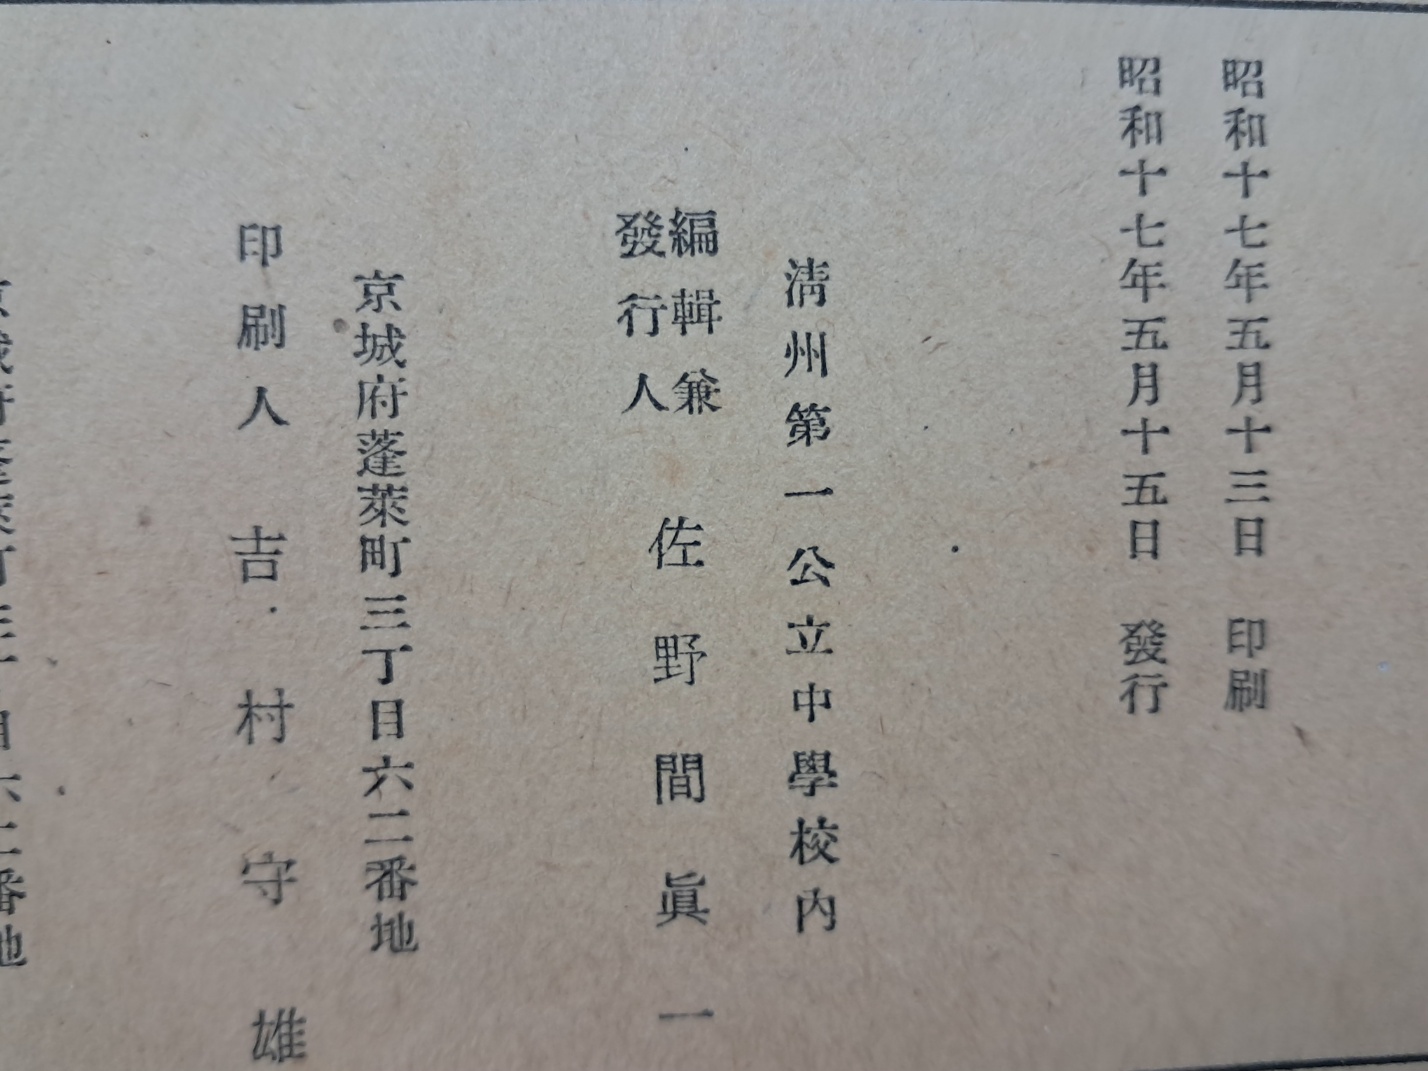 昭和十七年五月十三日　印刷
昭和十七年五月十五日　發行
淸州第一公立中學校內
編輯兼
發行人　佐野間眞一
京城府蓬萊町三丁目六二番地
印刷人　吉村守雄
京城府蓬萊町三丁目六二番地